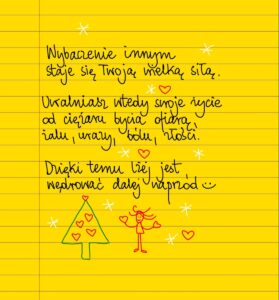 Wybaczenie innym
staje się Twoją wielką siłą.
Uwalniasz wtedy swoje życie
od ciężaru bycia ofiarą,
żalu, urazy, bólu, złości.
Dzięki temu lżej jest
wędrować dalej naprzód